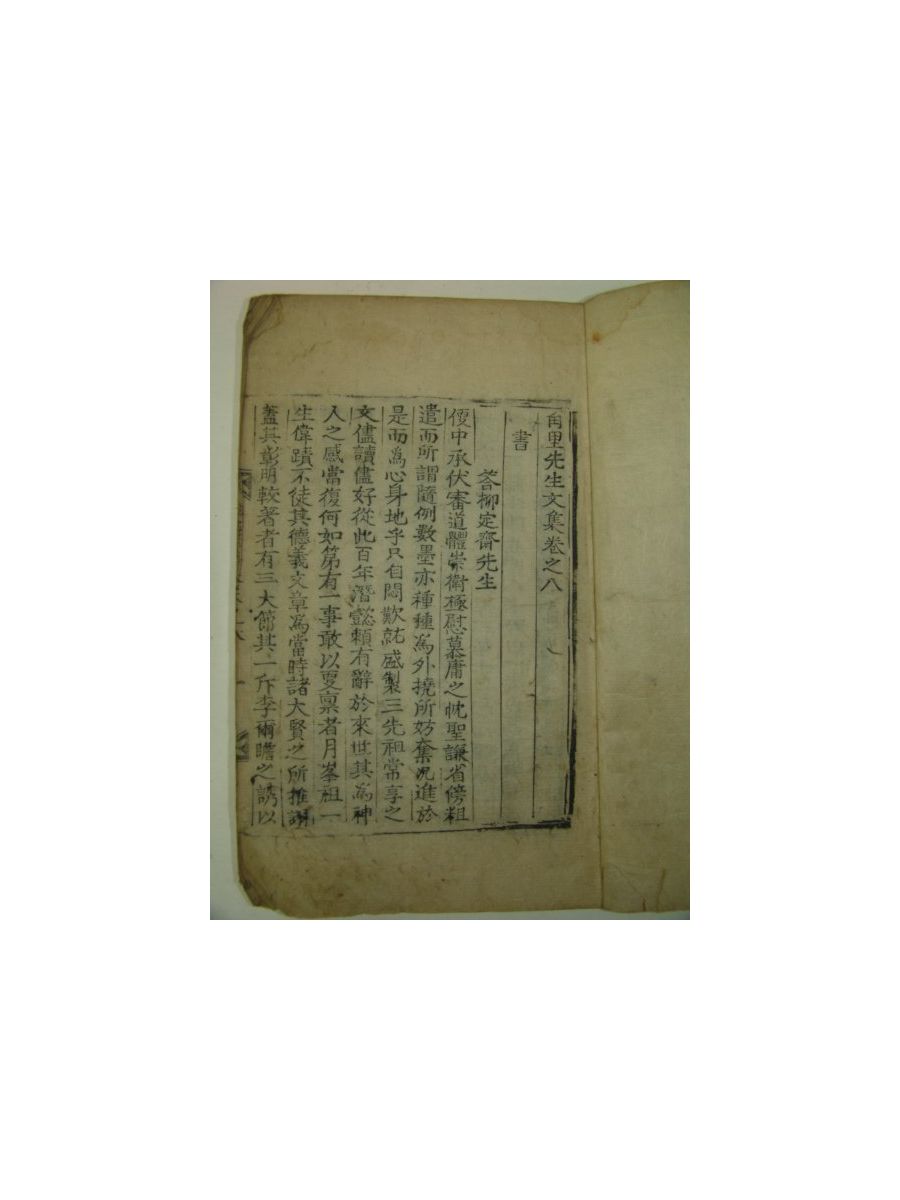 甪里先生文集卷之八
書
答柳定齋先生
便中承伏審道體崇衛極慰慕庸之忱聖謙省傍粗
遣而所謂隨例數墨亦種種爲外撓所妨奪况進於
是而爲心身地乎只自悶歎就盛製三先祖常享之
文儘讀儘好從此百年潛懿賴有辭於來世其爲神
人之感當復何如第有一事敢以更稟者月峯祖一
生偉蹟不徒其德義文章爲當時諸大賢之所推詡
蓋其彰明較著者有三大節其一斥李爾瞻之誘以